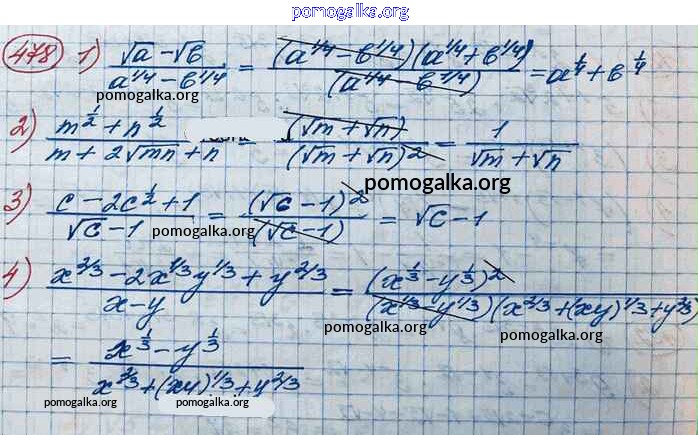 pomogalka.org
478 1) (√a - √b)/(a^1/4 - b^1/4) = ((a^1/4 - b^1/4)(a^1/4 + b^1/4))/(a^1/4 - b^1/4) = a^1/4 + b^1/4
pomogalka.org
2) (m^1/2 + n^1/2)/(m + 2√mn + n) = (√m + √n)/(√m + √n)^2 = 1/(√m + √n)
pomogalka.org
3) (c - 2c^1/2 + 1)/(√c - 1) = (√c - 1)^2/(√c - 1) = √c - 1
pomogalka.org
4) (x^2/3 - 2x^1/3 y^1/3 + y^2/3)/(x - y) = (x^1/3 - y^1/3)^2/((x^1/3 - y^1/3)(x^2/3 + (xy)^1/3 + y^2/3))
pomogalka.org pomogalka.org
= (x^1/3 - y^1/3)/(x^2/3 + (xy)^1/3 + y^2/3)
pomogalka.org pomogalka.org